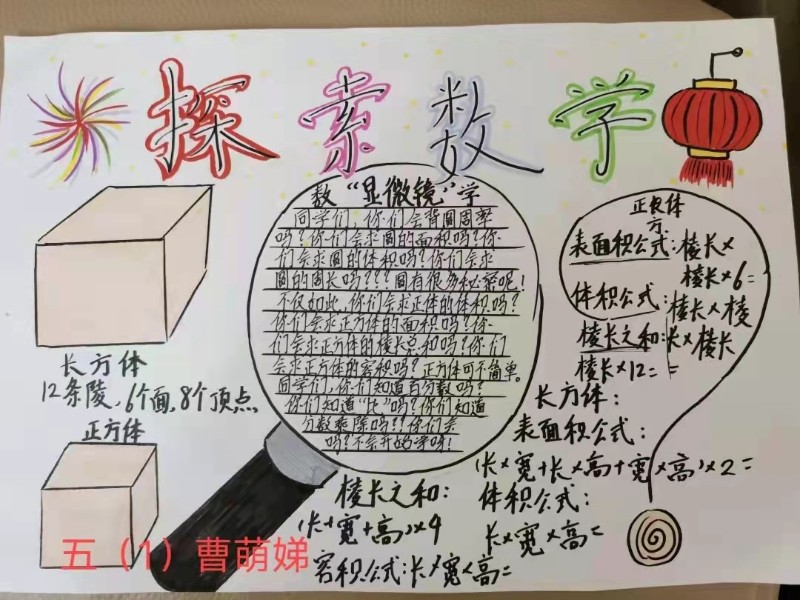 探索数学
数“显微镜”学
同学们，你们会背圆周率
吗？你们会求圆的面积吗？你
们会求圆的体积吗？你们会求
圆的周长吗？？？圆有很多秘密呢！
不仅如此，你们会求正体的体积吗？
你们会求正方体的面积吗？你
们会求正方体的棱长总和吗？你们
会求正方体的容积吗？正方体可不简单。
同学们，你们知道百分数吗？
你们知道“比”吗？你们知道
分数乘除吗？？你们会
吗？不会开始学呀！
长方体
12条陵，6个面，8个顶点
正方体
五（1）曹萌娣
正方体
表面积公式：棱长×
棱长×6=
体积公式：棱长×棱
长×棱长
棱长之和：
棱长×12==
长方体：
表面积公式：
(长×宽+长×高+宽×高)×2=
棱长之和：
(长+宽+高)×4
体积公式：
长×宽×高=
容积公式：长×宽×高=